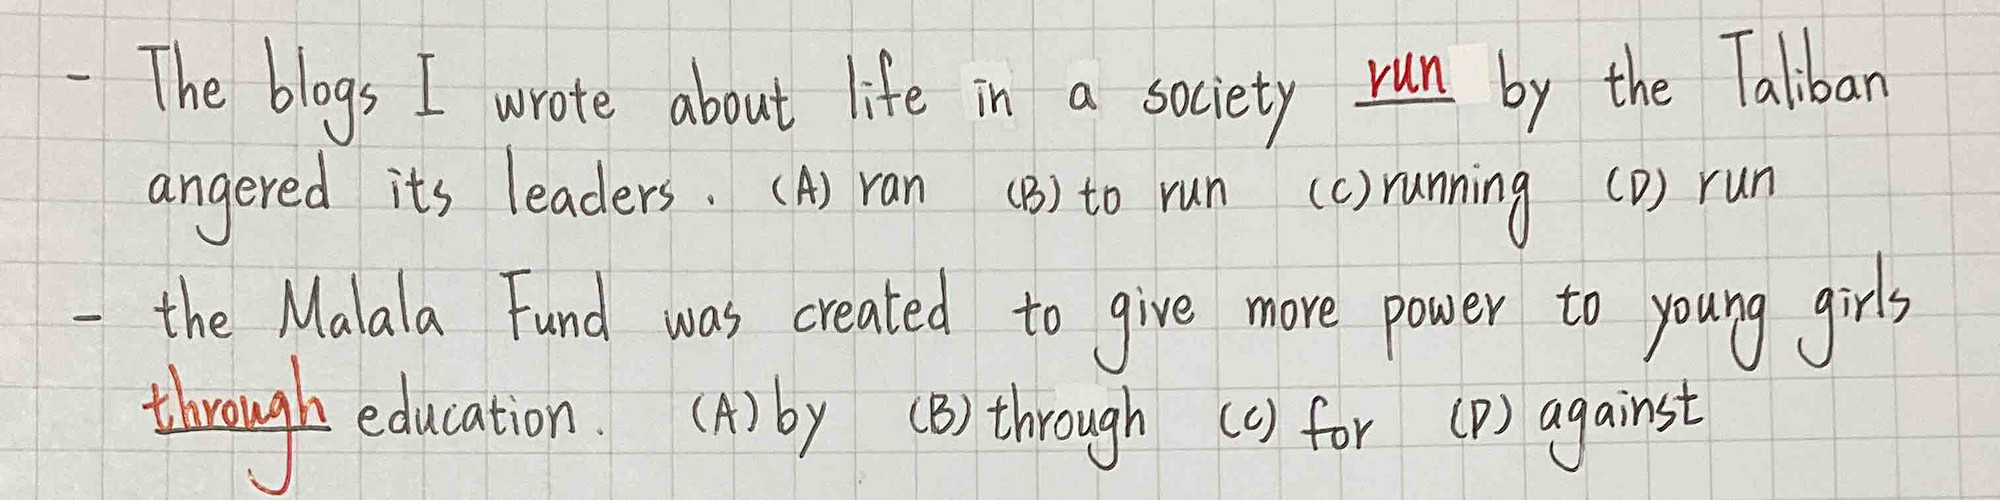 - The blogs I wrote about life in a society run by the Taliban
angered its leaders. (A) ran (B) to run (C) running (D) run
- the Malala Fund was created to give more power to young girls
through education. (A) by (B) through (C) for (D) against